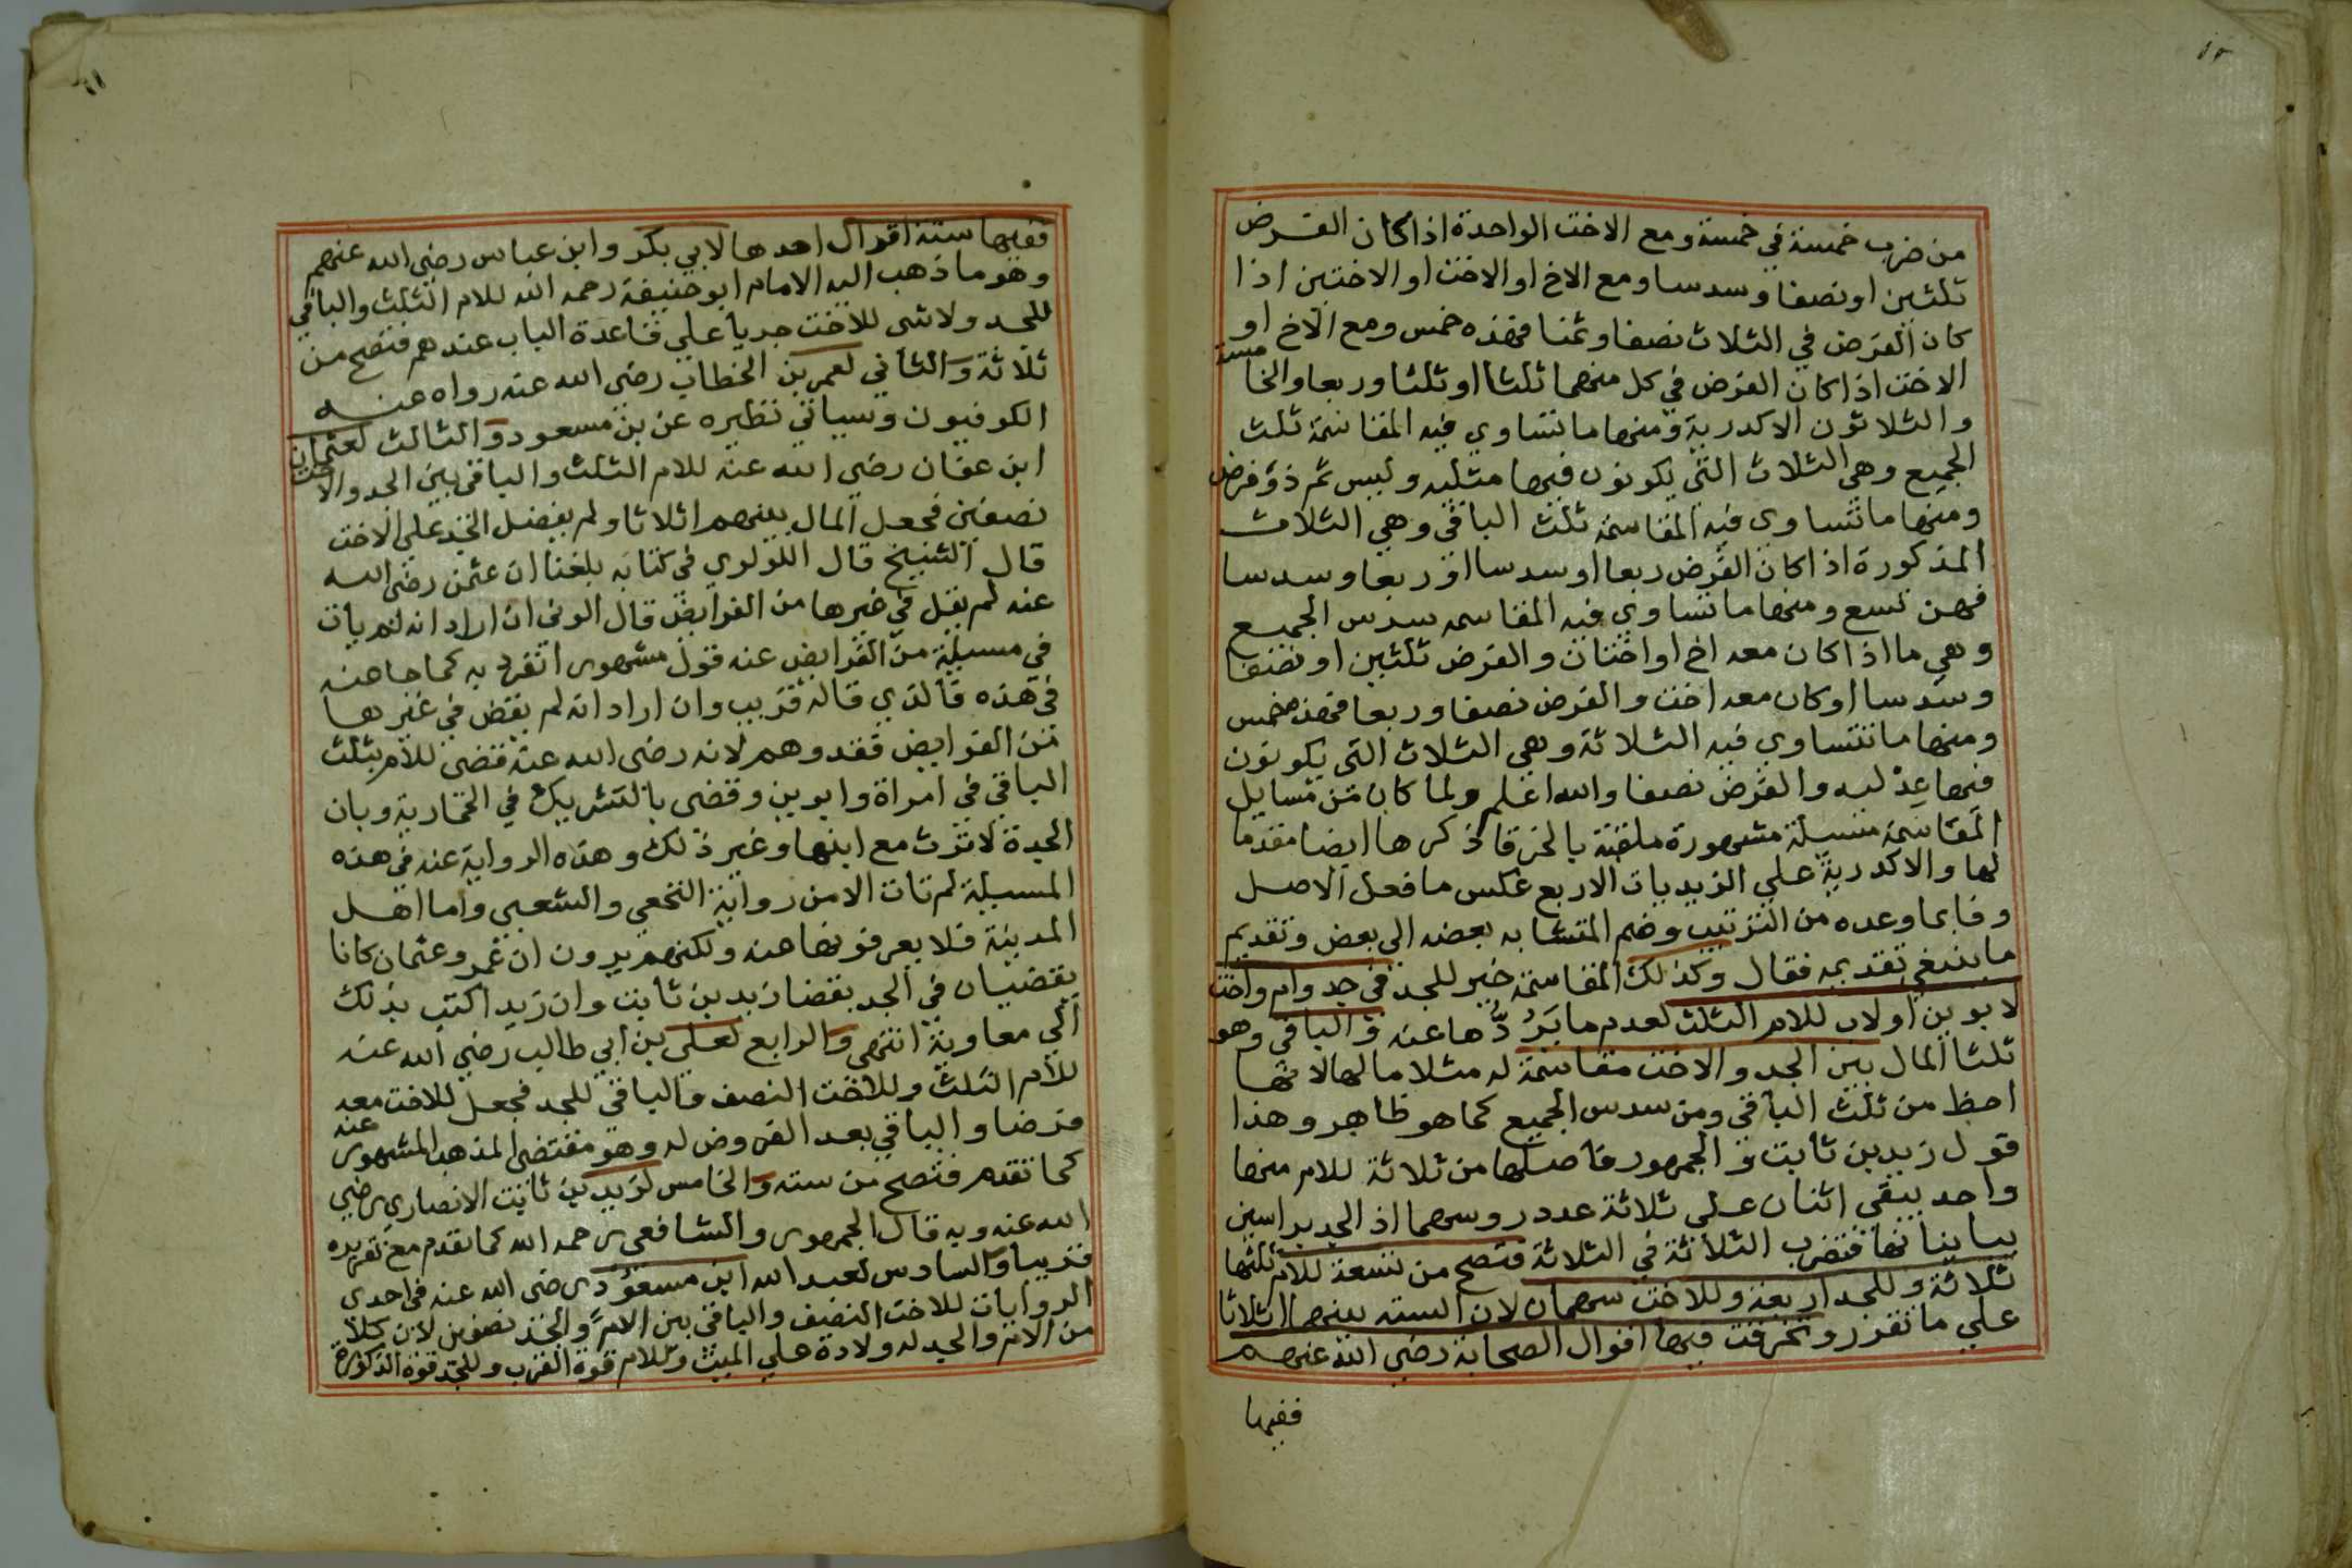 من ضرب خمسة في خمسة ومع الاخت الواحدة اذا كان الفرض
ثلثين او نصفا وسدسا ومع الاخ او الاخت او الاختين اذا
كان الفرض في الثلاث نصفا وثمنا فهذه خمس ومع الاخ او
الاخت اذا كان الفرض في كل منهما ثلثا او ثلثا وربعا والخامسة
والثلاثون الاكدرية ومنها ما تتساوي فيه المقاسمة ثلث
الجميع وهي الثلاث التي يكونون فيها مثليه وليس ثم ذو فرض
ومنها ما تتساوي فيه المقاسمة ثلث الباقي وهي الثلاث
المذكورة اذا كان الفرض ربعا او سدسا او ربعا وسدسا
فهن تسع ومنها ما تتساوي فيه المقاسمه سدس الجميع
وهي ما اذا كان معه اخ او اختان والفرض ثلثين او نصفا
وسدسا او كان معه اخت والفرض نصفا وربعا فهذه خمس
ومنها ما تتساوي فيه الثلاثة وهي الثلاث التي يكونون
فيها عدليه والفرض نصفا والله اعلم ولما كان من مسايل
المقاسمة مسيلة مشهورة ملقبة بالخرقا ذكرها ايضا مقدما
لها والاكدرية علي الزيديات الاربع عكس ما فعل الاصل
وفا بما وعده من الترتيب وضم المتشابه بعضه الي بعض وتقديم
ما ينبغي تقديمه فقال وكذلك المقاسمة خير للجد في جد وام واخت
لابوين او لاب للام الثلث لعدم ما يَرُدُّها عنه و الباقي وهو
ثلثا المال بين الجد والاخت مقاسمة له مثلا ما لها لانها
احظ من ثلث الباقي ومن سدس الجميع كما هو ظاهر وهذا
قول زيد بن ثابت و الجمهور فاصلها من ثلاثة للام منها
واحد يبقي اثنان علي ثلاثة عدد روسهما اذ الجد براسين
يباينانها فتضرب الثلاثة في الثلاثة فتصح من تسعة للام ثلثها
ثلاثة وللجد اربعة وللاخت سهمان لان السته بينهما اثلاثا
علي ما تقرر وتخرقت فيها اقوال الصحابة رضي الله عنهم
ففيها
ففيها ستة اقوال احدها لابي بكر وابن عباس رضي الله عنهم
وهو ما ذهب اليه الامام ابو حنيفة رحمه الله للام الثلث والباقي
للجد ولا شي للاخت جريا علي قاعدة الباب عندهم فتصح من
ثلاثة و الثاني لعمر بن الخطاب رضي الله عنه رواه عنه
الكوفيون وسياتي نظيره عن بن مسعود و الثالث لعثمان
ابن عفان رضي الله عنه للام الثلث والباقي بين الجد والاخت
نصفين فجعل المال بينهم اثلاثا ولم يفضل الجد علي الاخت
قال الشيخ قال اللولوي في كتابه بلغنا ان عثمن رضي الله
عنه لم يقل في غيرها من الفرايض قال الوني ان اراد انه لم يات
في مسيلة من الفرايض عنه قول مشهور انفرد به كما جا عنه
في هذه فالذي قاله قريب وان اراد انه لم يقض في غيرها
من الفرايض فقد وهم لانه رضي الله عنه قضي للام بثلث
الباقي في امراة وابوين وقضي بالتشريك في الحمارية وبان
الجدة لا ترث مع ابنها وغير ذلك وهذه الرواية عنه في هذه
المسيلة لم تات الا من رواية النخعي والشعبي واما اهل
المدينة فلا يعرفونها عنه ولكنهم يرون ان عمر وعثمان كانا
يقضيان في الجد بقضا زيد بن ثابت وان زيد اكتب بذلك
الي معاوية انتهي و الرابع لعلي بن ابي طالب رضي الله عنه
للام الثلث وللاخت النصف والباقي للجد فجعل للاخت معه
فرضا والباقي بعد الفروض له وهو مقتضي المذهب المشهور عنه
كما تقدم فتصح من سته و الخامس لزيد بن ثابت الانصاري رضي
الله عنه وبه قال الجمهور والشافعي رحمه الله كما تقدم مع تقريره
قريبا و السادس لعبد الله ابن مسعود رضي الله عنه في احدي
الروايات للاخت النصف والباقي بين الام والجد نصفين لان كلا
من الام والجد له ولادة علي الميت وللام قوة القرب وللجد قوة الذكورة